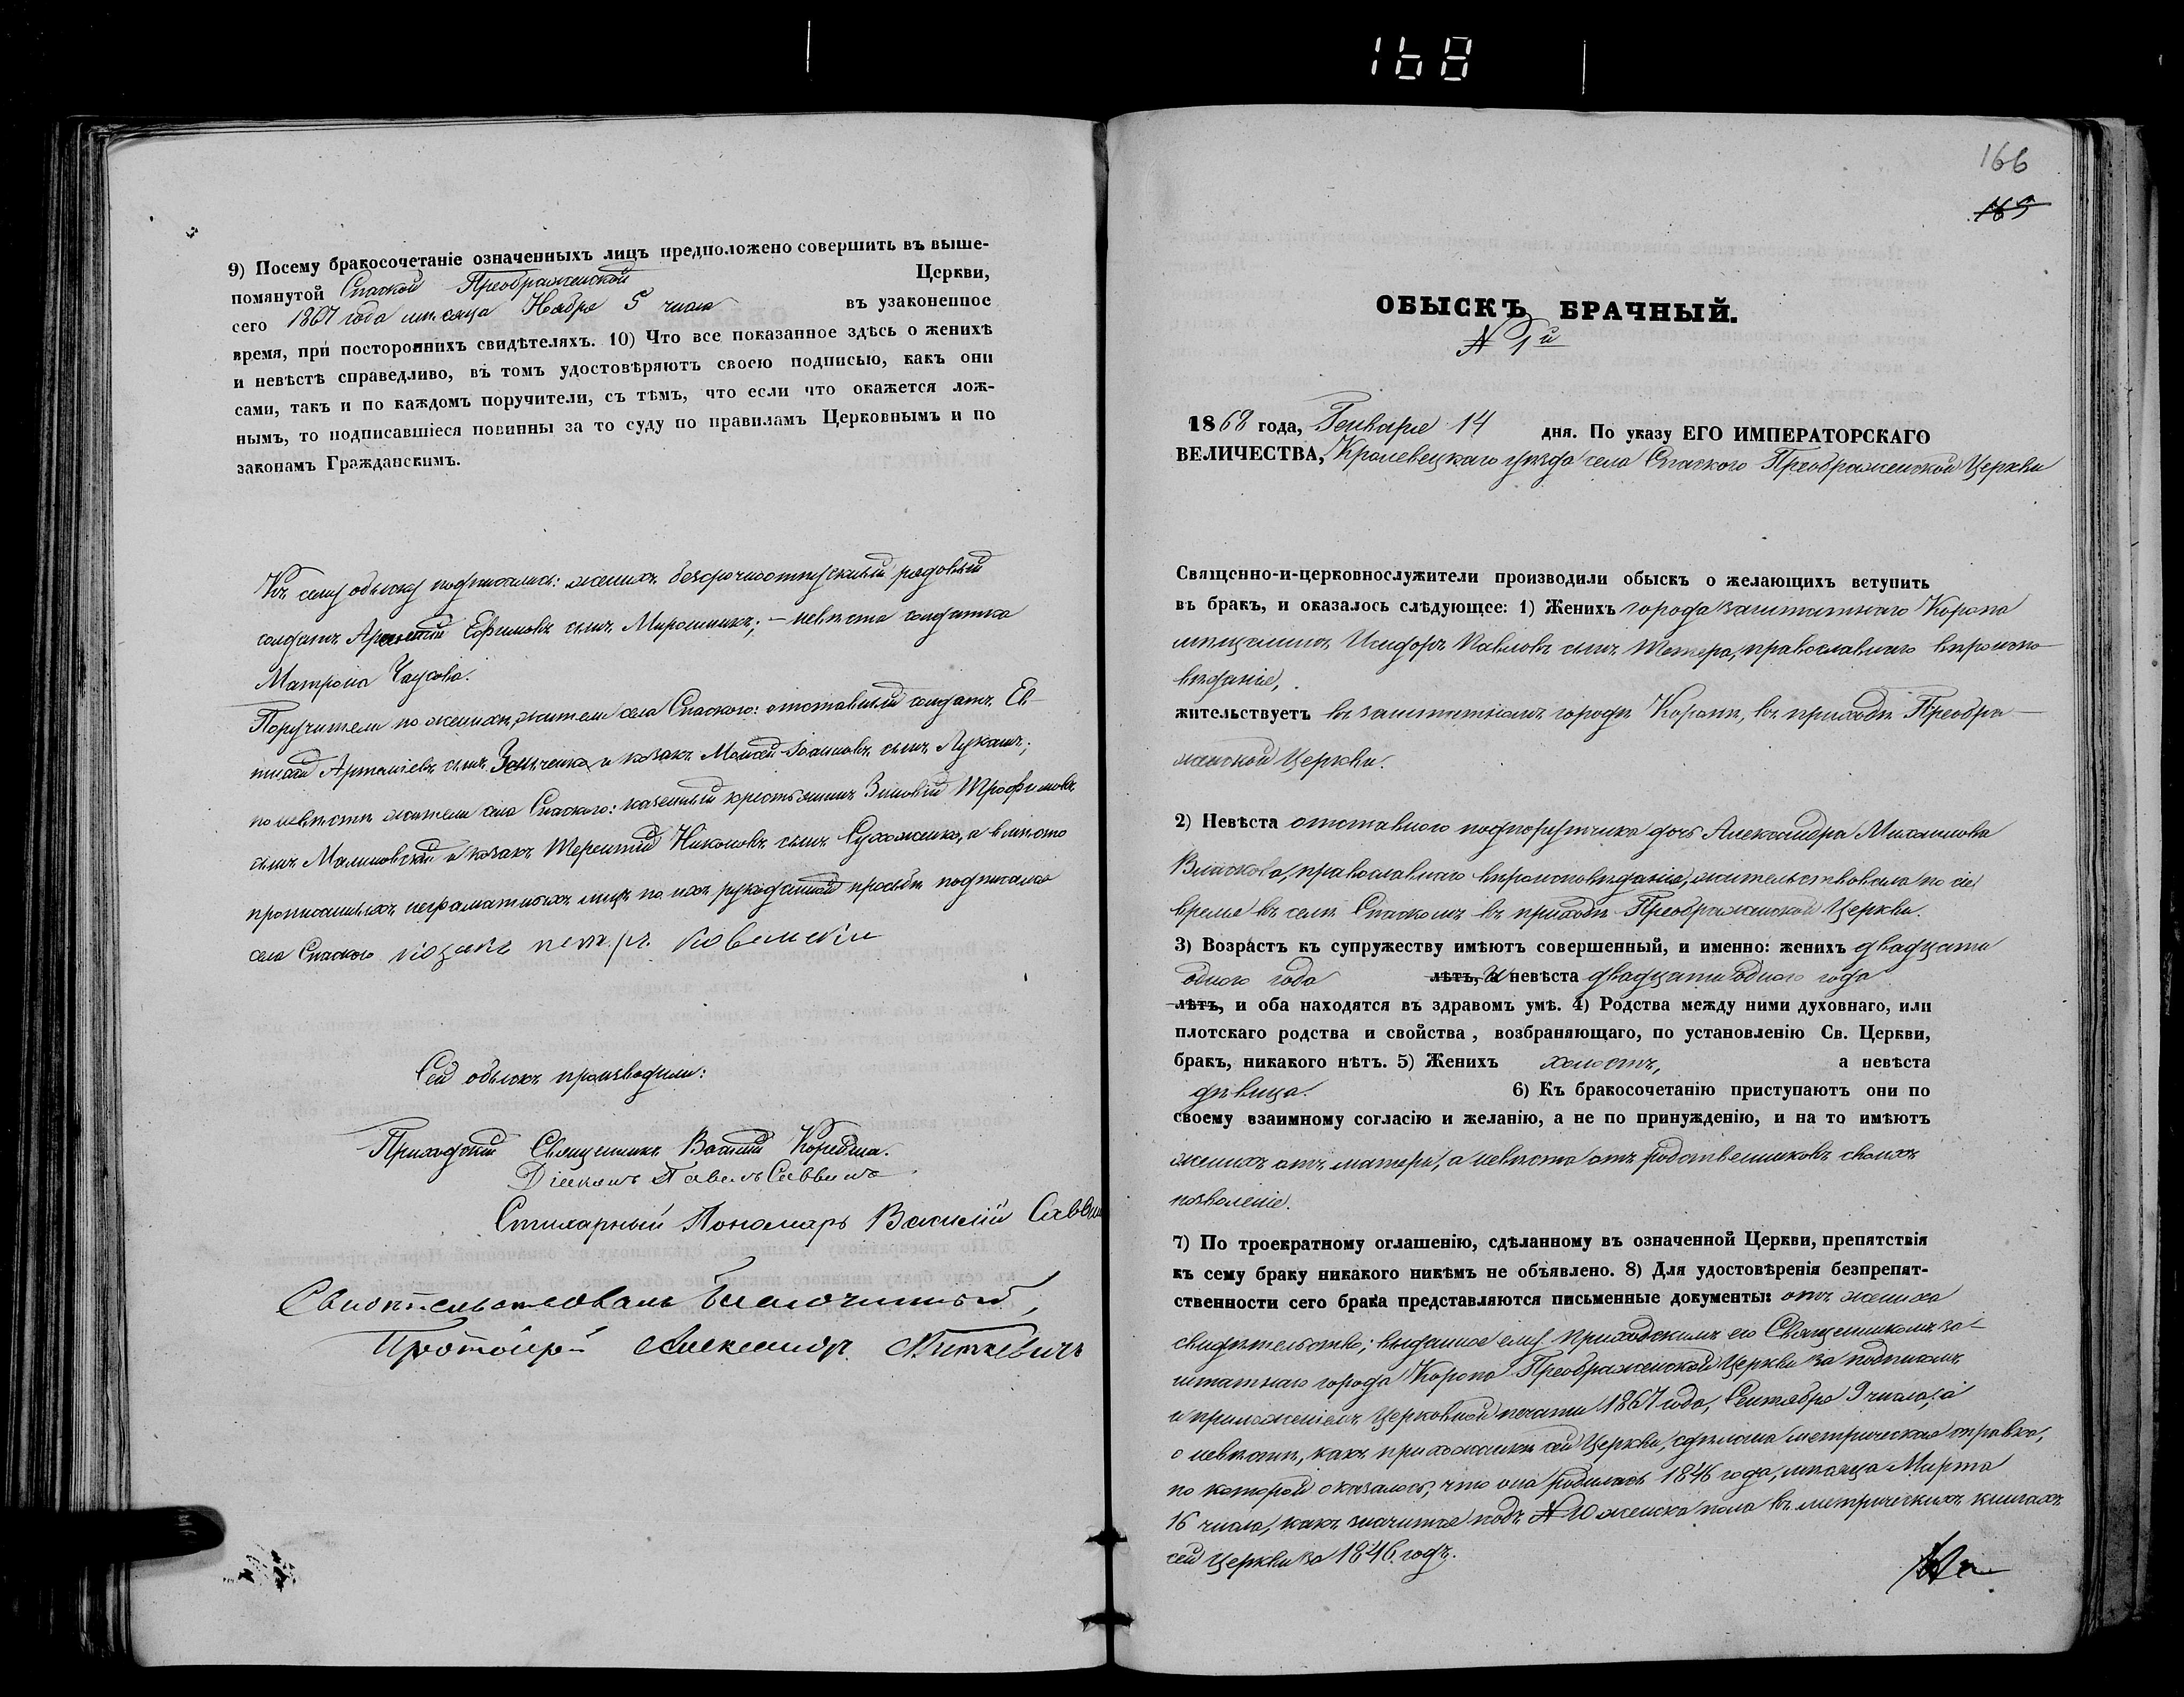 168
9) Посему бракосочетаніе означенныхъ лицъ предположено совершить въ выше-
помянутой Спаской Преображенской Церкви,
сего 1867 года мѣсяца Ноября 5 числа въ узаконенное
время, при постороннихъ свидѣтеляхъ. 10) Что все показанное здѣсь о женихѣ
и невѣстѣ справедливо, въ томъ удостовѣряютъ своею подписью, какъ они
сами, такъ и по каждомъ поручители, съ тѣмъ, что если что окажется лож-
нымъ, то подписавшіеся повинны за то суду по правиламъ Церковнымъ и по
законамъ Гражданскимъ.
Къ сему обыску подписались: женихъ безсрочноотпускный рядовый
солдатъ Ефимовъ сынъ Мирошникъ; — невѣста солдатка
Матрона Чаусова.
Поручители по женихѣ, жители села Спаского: отставный солдатъ Ев-
Артеміевъ сынъ Зенченко и козакъ Моисей Іоанновъ сынъ Лукашъ;
по невѣстѣ жители села Спаского: казенный крестьянинъ Зиновій Трофимовъ
сынъ Малиновскій и козакъ Терентій Никоновъ сынъ Сухоженко, а вмѣсто
прописанныхъ неграматныхъ лицъ по ихъ рукоданной просьбѣ подписался
села Спаского козакъ петръ
Сей обыскъ производили:
Приходскій Священникъ Василій Кореша.
Діаконъ Павелъ Саввинъ
Стихарный Пономарь Василій Савви
Свидѣтельствовалъ Благочинный,
Протоіерей Александръ
166
165
ОБЫСКЪ БРАЧНЫЙ.
№ 1й
1868 года, Генваря 14 дня. По указу ЕГО ИМПЕРАТОРСКАГО
ВЕЛИЧЕСТВА, Кролевецкаго уѣзда села Спаского Преображенской Церкви
Священно-и-церковнослужители производили обыскъ о желающихъ вступить
въ бракъ, и оказалось слѣдующее: 1) Женихъ города заштатнаго Коропа
мѣщанинъ Исидоръ Павловъ сынъ Тетера, православнаго вѣроиспо-
вѣданія,
жительствуетъ въ заштатномъ городѣ Коропѣ, въ приходѣ Преобра-
женской Церкви.
2) Невѣста отставного подпоручика дочь Александра Михаилова
православнаго вѣроисповѣданія, жительствовала по сіе
время въ селѣ Спаскомъ въ приходѣ Преображенской Церкви.
3) Возрастъ къ супружеству имѣютъ совершенный, и именно: женихъ двадцати
одного года лѣтъ, а невѣста двадцати одного года
лѣтъ, и оба находятся въ здравомъ умѣ. 4) Родства между ними духовнаго, или
плотскаго родства и свойства, возбраняющаго, по установленію Св. Церкви,
бракъ, никакого нѣтъ. 5) Женихъ холостъ, а невѣста
дѣвица. 6) Къ бракосочетанію приступаютъ они по
своему взаимному согласію и желанію, а не по принужденію, и на то имѣютъ
женихъ отъ матери, а невѣста отъ родственниковъ своихъ
позволеніе.
7) По троекратному оглашенію, сдѣланному въ означенной Церкви, препятствія
къ сему браку никакого никѣмъ не объявлено. 8) Для удостовѣренія безпрепят-
ственности сего брака представляются письменные документы: отъ жениха
свидѣтельство, выданное ему Приходскимъ его Священникомъ за-
штатнаго города Коропа Преображенской Церкви за подписомъ
и приложеніемъ Церковной печати 1867 года, Сентября 9 числа, а
о невѣстѣ, какъ прихожанкѣ сей Церкви, сдѣлана метрическая справка,
по которой оказалось, что она родилась 1846 года, мѣсяца Марта
16 числа, какъ значится подъ № 10 женска пола въ метрическихъ книгахъ
сей Церкви за 1846 годъ.